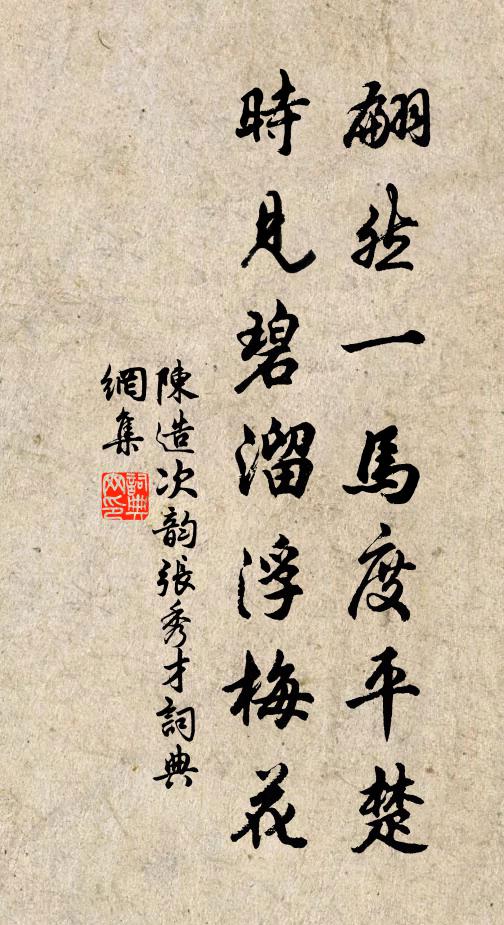 翩然一馬度平楚
時見碧溜浮梅花
陳造次韵張秀才詞典
網集
詞典
网印